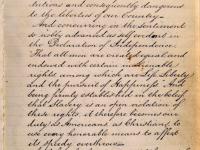 tutions and consequently dangerous
to the liberties of our Country—
And concurring in the sentiment
so nobly advanced as self evident in
the Declaration of Independence
That all men are created equal and
endowed with certain unalienable
rights among which are Life Liberty
and the pursuit of Happiness. And
being firmly established in the belief
that Slavery is an open violation of
these rights. It therefore becomes our
duty as Americans as Christians, to
use every honorable means to affect
its speedy overthrow